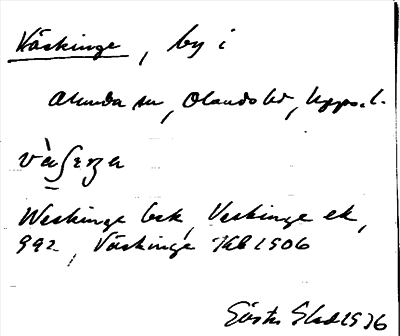 Väskinge, by i
Alunda sn, Olands hd, Upps. l.
Weskinge bsk, Veskinge ek,
992, Väskinge Kbl 1906
Gösta 1936